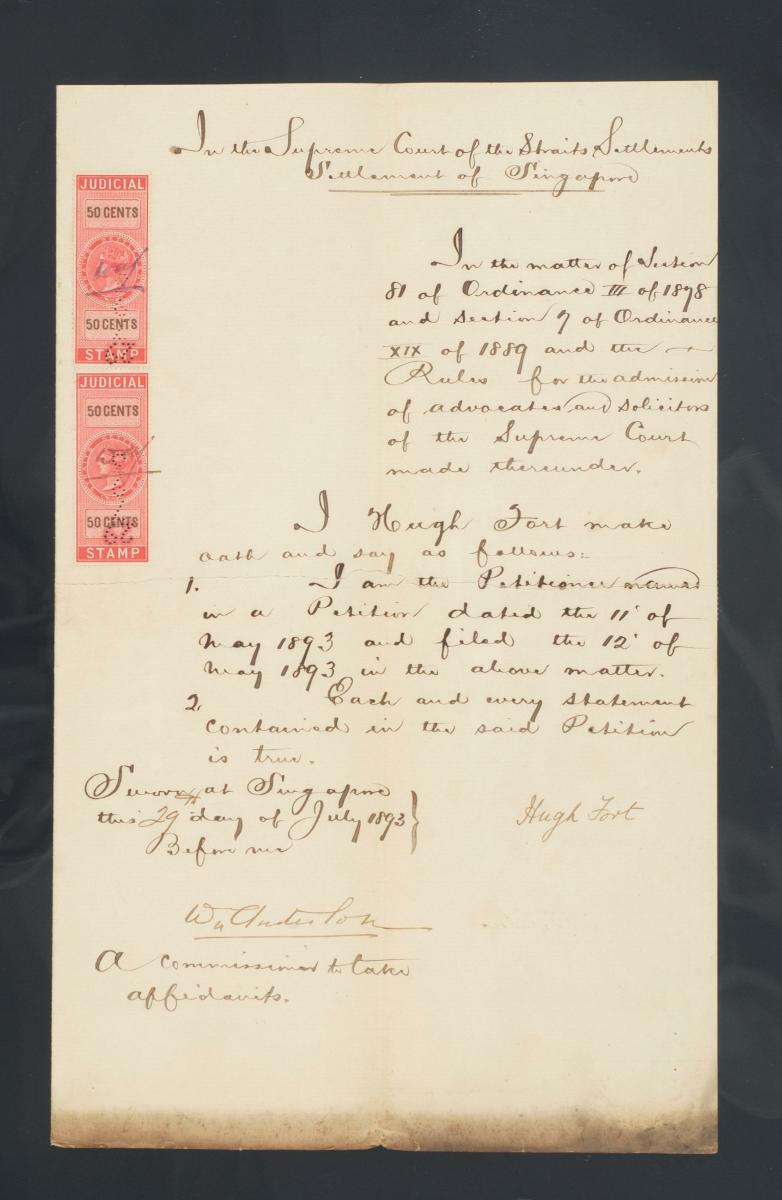 In the Supreme Court of the Straits Settlements
Settlement of Singapore
JUDICIAL
50 CENTS
50 CENTS
STAMP
JUDICIAL
50 CENTS
50 CENTS
STAMP
In the matter of Section
81 of Ordinance III of 1878
and Section 7 of Ordinance
XIX of 1889 and the
Rules for the admission
of advocates and solicitors
of the Supreme Court
made thereunder.
I Hugh Fort make
oath and say as follows:
1. I am the Petitioner named
in a Petition dated the 11' of
May 1893 and filed the 12' of
May 1893 in the above matter.
2. Each and every statement
contained in the said Petition
is true.
Sworn at Singapore
this 29th day of July 1893
Before me
Hugh Fort
Wm Anderson
A commissioner to take
affidavits.